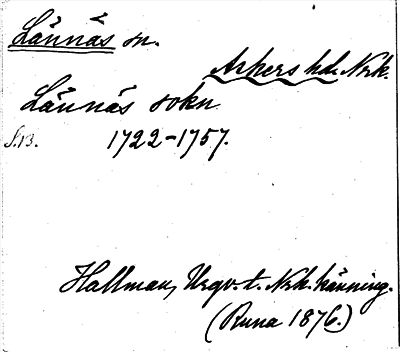 Lännäs sn.
Askers hd. Nrk.
Lännäs sokn
S.13. 1722-1757.
Hallman, Urgv. t. Nrk. känning.
(Runa 1876.)